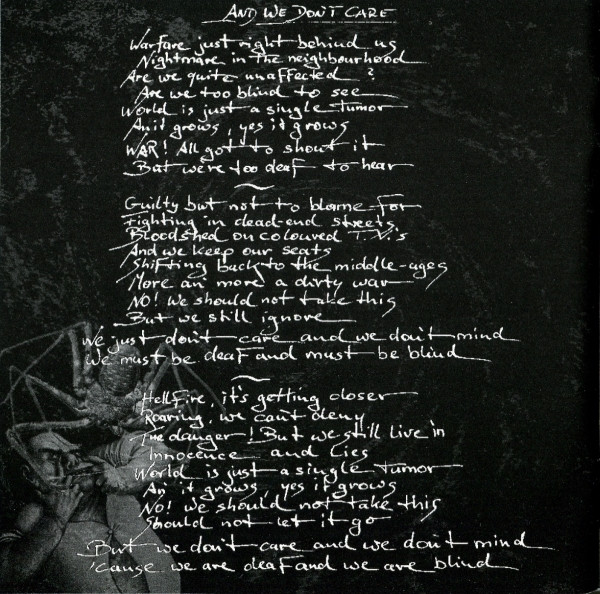 AND WE DON'T CARE
Warfare just right behind us
Nightmare in the neighbourhood
Are we quite unaffected ?
Are we too blind to see
World is just a single tumor
An it grows, yes it grows
WAR! All got to shout it
But we're too deaf to hear
Guilty but not to blame for
Fighting in dead-end streets
Bloodshed on coloured T.V.'s
And we keep our seats
Shifting back to the middle-ages
More an' more a dirty war
NO! We should not take this
But we still ignore
We just don't care and we don't mind
We must be deaf and must be blind
Hellfire, it's getting closer
Roaring, we can't deny
The danger! But we still live in
Innocence and lies
World is just a single tumor
An' it grows, yes it grows
No! We should not take this
Should not let it go
But we don't care and we don't mind
'cause we are deaf and we are blind